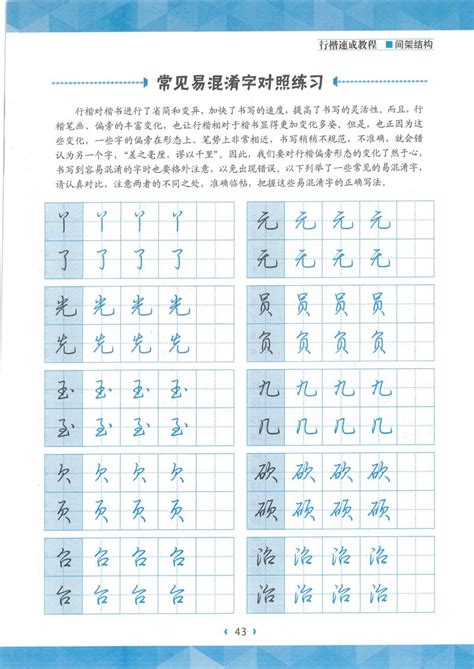 行楷速成教程 ■间架结构
常见易混淆字对照练习
行楷对楷书进行了省简和变异，加快了书写的速度，提高了书写的灵活性。而且，行
楷笔画、偏旁的丰富变化，也让行楷相对于楷书显得更加变化多姿。但是，也正因为这
些变化，一些字的偏旁在形态上、笔势上非常相近，书写稍稍不规范，不准确，就会错
认为另一个字，“差之毫厘，谬以千里”，因此，我们要对行楷偏旁形态的变化了然于心，
书写到容易混淆的字时也要格外注意，以免出现错误。以下列举了一些常见的易混淆字，
请认真对比，注意两者的不同之处，准确临帖，把握这些易混淆字的正确写法。
丫 丫 丫 丫
了 了 了 了
元 元 元 元
无 无 无 无
光 光 光 光
先 先 先 先
员 员 员 员
负 负 负 负
玉 玉 玉 玉
至 至 至 至
九 九 九 九
几 几 几 几
欠 欠 欠 欠
页 页 页 页
砍 砍 砍 砍
硕 硕 硕 硕
台 台 台 台
治 治 治 治
43